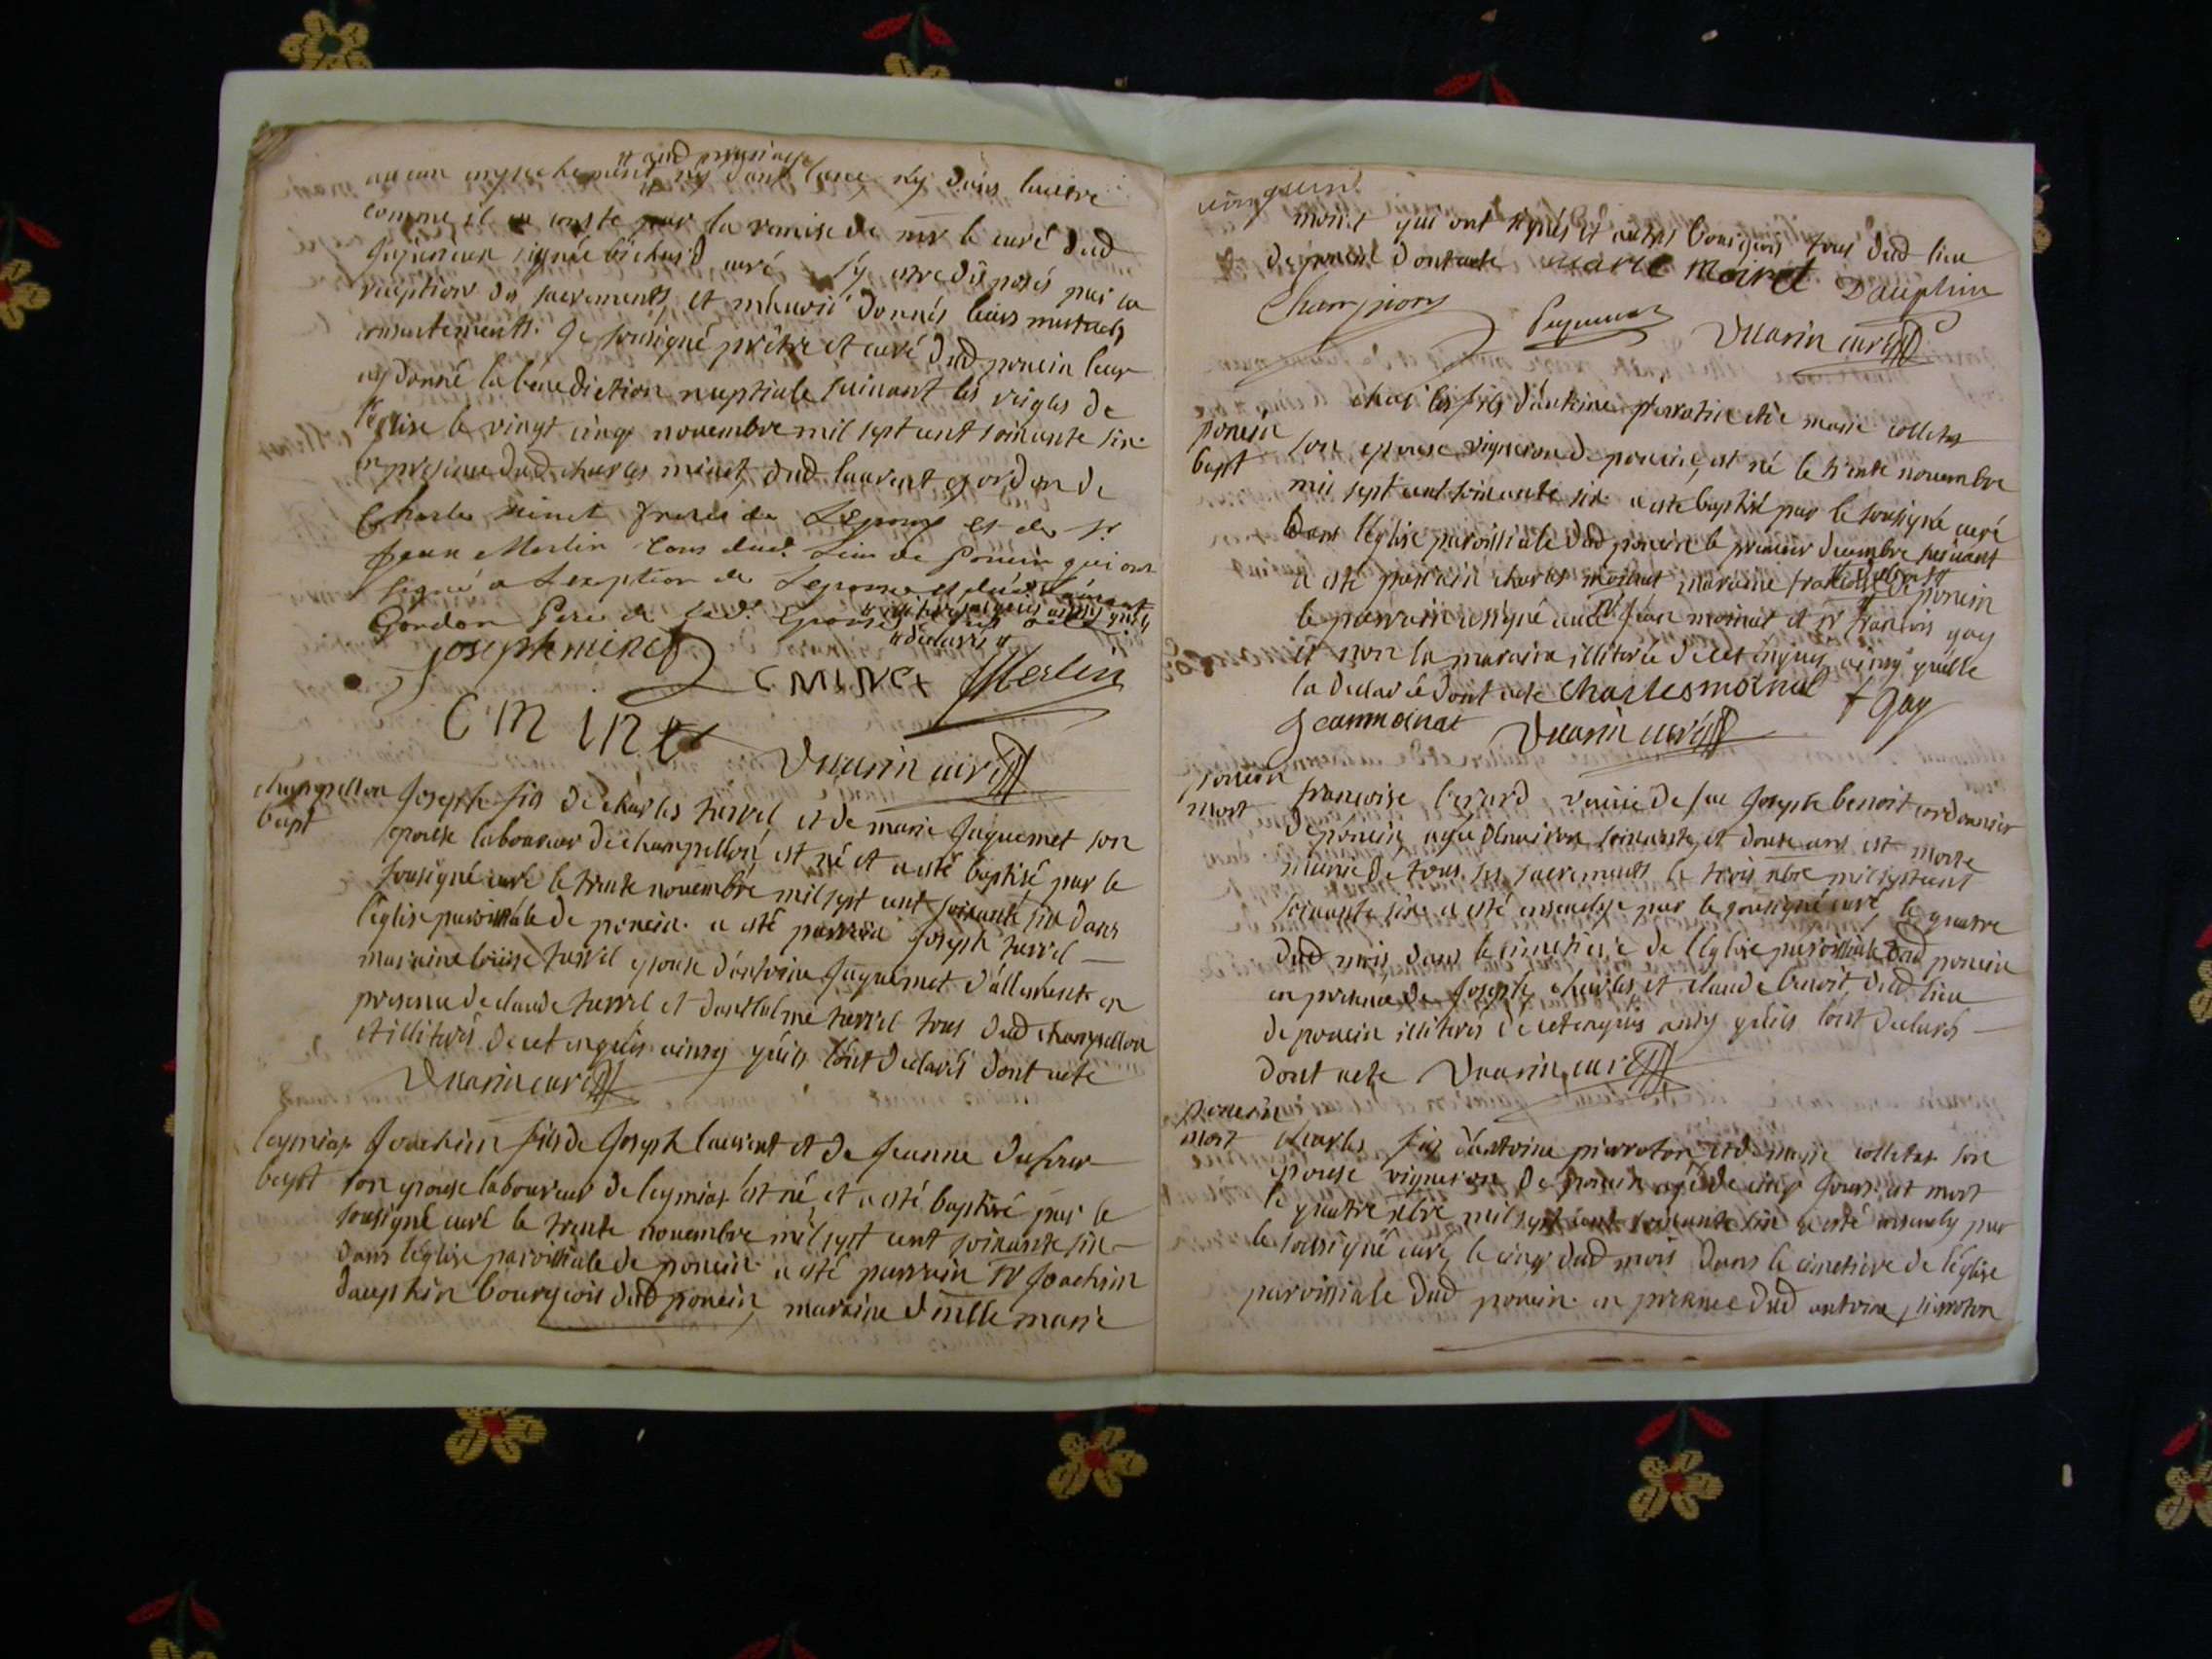 aucun empechement ny dans lune, ny dans lautre
comme il en conste par la remise de mr le curé dud
curé s'y estre disposés par la
reception des sacrements, et m'avoir donnés leurs mutuels
consentements. Je soussigné prêtre et curé dud poncin leur
ay donné la bénediction nuptiale suivant les reigles de
l'eglise le vingt cinq novembre mil sept cent soixante six
en presence dud charles minet, dud laurent gordon de
Charles minet freres de Lepoux et de Sr.
Jean Merlin tous dud. Lieu de Poncin qui ont
signé a Lexeption de Lepouse et dud Laurent
Gordon Pere de lad. Epouse
declarés
joseph minet
C MINET JMerlin
C MINET
Vuarin curé
champellon
bapt
Joseph fils de charles turrel et de marie Juquemet son
epouse laboureur de champellon est né et a esté baptisé par le
soussigné curé le trente novembre mil sept cent soixante six dans
l'église paroissiale de poncin. a esté parrain Joseph turrel
maraine louise turrel epouse d'antoine Juquemet d'allement en
presence de claude turrel et d'anthelme turrel tous dud champellon
et illiterés de ce enquis ainsy qu'ils l'ont declarés dont acte
Vuarin curé
leymiat
bapt
Joachim fils de Joseph laurent et de Jeanne dufour
son epouse laboureur de leymiat est né, et a esté baptisé par le
soussigné curé le trente novembre mil sept cent soixante six
dans l'église paroissiale de poncin. a esté parrain Sr Joachim
dauphin bourgeois dud poncin, maraine dmlle marie
moiret qui ont signés et autres bourgeois tous dud lieu
de poncin dont acte marie Moiret Dauphin
Champion Vuarin curé
poncin
bapt
charles fils d'antoine pierroton et de marie colletas
son epouse vigneron de poncin, est né le trente novembre
mil sept cent soixante six a esté baptisé par le soussigné curé
dans l'église paroissiale dud poncin le premier decembre suivant
a esté parrain charles moinat maraine
poncin
le parrain a signé avec Sr jean moinat et Sr françois gay
et non la maraine illiterée de ce enquise ainsy qu'elle
la declaré dont acte Charles moinat f Gay
Jean moinat Vuarin curé
poncin
mort
françoise berard, veuve de feu Joseph benoit cordonnier
de poncin, agée d'environ soixante et douze ans est morte
munie de tous ses sacrements le trois xbre mil sept cent
soixante six a esté ensevelye par le soussigné curé, le quatre
dud mois dans le cimetiere de l'église paroissiale dud poncin
en presence de Joseph, charles et claude benoit dud lieu
de poncin illiterés de ce enquis ainsy qu'ils l'ont declarés
dont acte Vuarin curé
poncin
mort
charles fils d'antoine pierroton, et de marie colletas son
epouse vigneron de poncin agé de cinq jours est mort
le quatre xbre mil sept cent soixante six a esté ensevely par
le soussigné curé, le cinq dud mois dans le cimetiere de l'église
paroissiale dud poncin. en presence dud antoine pierroton